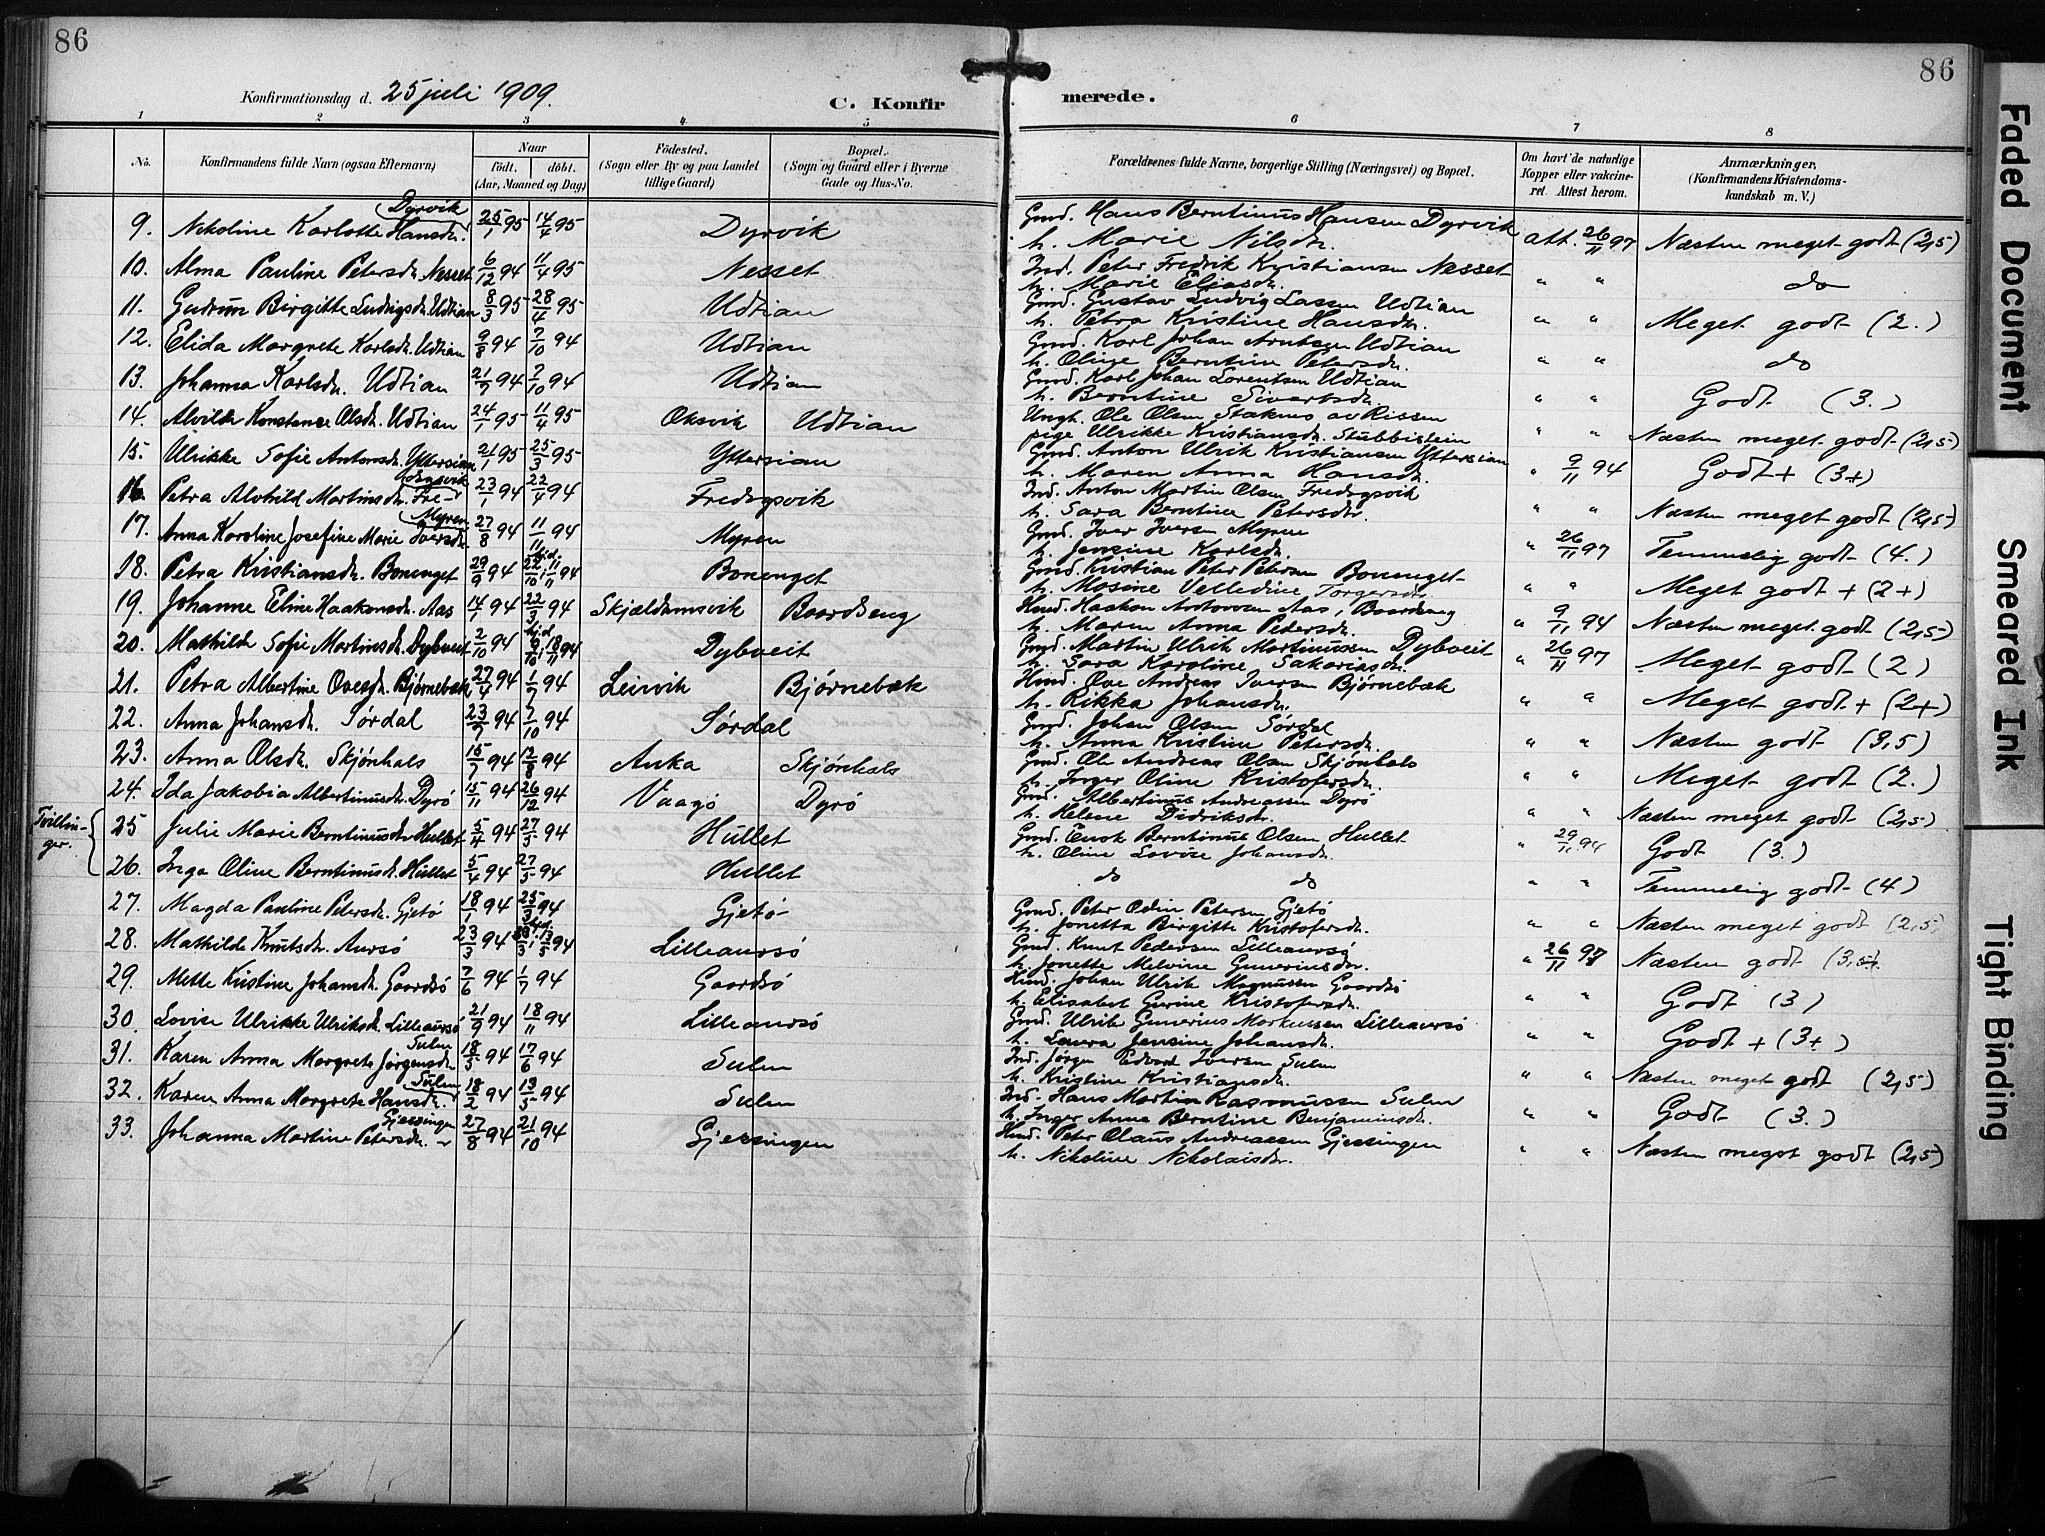 86
86
Konfirmationsdag d. 25 juli 1909.
C. Konfirmerede.
1 2 3 4 5 6 7 8
No. Konfirmandens fulde Navn (ogsaa Efternavn) Naar født. døbt. (Aar, Maaned og Dag) Fødested. (Sogn eller By og paa Landet tillige Gaard) Bopæl. (Sogn og Gaard eller i Byerne Gade og Hus-No. Forældrenes fulde Navne, borgerlige Stilling (Næringsvei) og Bopæl. Om havt de naturlige Kopper eller vakcineret. Attest herom. Anmærkninger. (Konfirmandens Kristendomskundskab m. V.)
9. Nikoline Karlotte Hansdr. Dyrvik 25/1 95 14/4 95 Dyrvik Gmd. Hans Berntinus Hansen Dyrvik h. Marie Nilsdr. att. 26/11 97 Næsten meget godt (2,5)
10. Alma Pauline Petersdr. Nesset 6/12 94 11/4 95 Nesset Ind. Peter Fredrik Kristiansen Nesset h. Marie Eliasdr. " " do
11. Gudrun Birgitte Ludvigsdr. Udtian 8/3 95 28/4 95 Udtian Gmd. Gustav Ludvig Lassen Udtian h. Petra Kristine Hansdr. " " Meget godt (2.)
12. Elida Margrete Karlsdr. Udtian 9/8 94 7/10 94 Udtian Gmd. Karl Johan Arntsen Udtian h. Oline Berntine Petersdr. " " do
13. Johanna Karlsdr. Udtian 21/7 94 7/10 94 Udtian Gmd. Karl Johan Lorentsen Udtian h. Berntine Sivertsdr. " " Godt (3.)
14. Alvilde Konstance Olsdr. Udtian 24/1 95 11/4 95 Oksvik Udtian Ungk. Ole Olsen Staknes av Rissen pige Ulrikke Kristiansdr. Stubbistein " " Næsten meget godt (2,5)
15. Ulrikke Sofie Antonsdr. Yttersian 21/1 95 25/3 95 Yttersian Gmd. Anton Ulrik Kristiansen Yttersian h. Maren Anna Hansdr. " 9/11 94 Godt + (3+)
16. Petra Alvhild Martinsdr. Fredagsvik 23/1 94 22/4 94 Fredagsvik Ind. Anton Martin Olsen Fredagsvik h. Sara Berntine Petersdtr. " " Næsten meget godt (2,5)
17. Anna Karoline Josefine Marie Iversdr. Myren 27/8 94 11/11 94 Myren Gmd. Iver Iversen Myren h. Jensine Karlsdr. " 26/11 97 Temmelig godt (4.)
18. Petra Kristiansdr. Bonenget 29/9 94 94 Bonenget Gmd. Kristian Peter Petersen Bonenget h. Mosine Velledine Torgersdr. " " Meget godt + (2+)
19. Johanne Eline Haakonsdr. Aas 14/1 94 22/3 94 Skjældamsvik Baardseng Husd. Haakon Antonsen Aas, Baardseng h. Maren Anna Pedersdr. " 9/11 94 Næsten meget godt (2,5)
20. Mathilde Sofie Martinsdr. Dybveit 2/10 94 94 Dybveit Gmd. Martin Ulrik Martinussen Dybveit h. Sara Karoline Sakariasdr. " 26/11 97 Meget godt (2)
21. Petra Albertine Ovesdr. Bjørnebæk 27/4 94 1/7 94 Leirvik Bjørnebæk Husd. Ove Andreas Iversen Bjørnebæk h. Rikka Johansdr. " " Meget godt + (2+)
22. Anna Johansdr. Sørdal 23/7 94 7/10 94 Sørdal Gmd. Johan Olsen Sørdal h. Anna Kristine Petersdr. " " Næsten godt (3,5)
23. Anna Olsdr. Skjønhals 15/7 94 12/8 94 Anka Skjønhals Gmd. Ole Andreas Olsen Skjønhals h. Inger Oline Kristofersdr. " " Meget godt (2.)
24. Ida Jakobia Albertinusdr. Dyrø 15/11 94 26/12 94 Vaagø Dyrø Gmd. Albertinus Andreassen Dyrø h. Helene Didriksdr. " " Næsten meget godt (2,5)
Tvillinger. 25 Julie Marie Berntinusdr Hullet 5/4 94 27/5 94 Hullet Gmd. Enok Berntinus Olsen Hullet h. Oline Lovise Johansdr. " 29/11 94 Godt (3.)
26. Inga Oline Berntinusdr. Hullet 5/4 94 27/5 94 Hullet do do " " Temmelig godt (4)
27. Magda Pauline Petersdr. Gjetø 18/1 94 25/3 94 Gjetø Gmd. Peter Odin Petersen Gjetø h. Jonetta Birgitte Kristofersdr. " " Næsten meget godt (2,5)
28. Mathilde Knutsdr. Aursø 23/3 94 94 Lilleaursø Gmd. Knut Pedersen Lilleaursø h. Jonette Melvine Guneriusdr. " 26/11 97 Næsten godt (3,5)
29. Mette Kristine Johansdr. Gaardsø 7/6 94 1/7 94 Gaardsø Husd. Johan Ulrik Magnussen Gaardsø h. Elisabet Gurine Kristofersdr. " " Godt (3)
30. Lovise Ulrikke Ulriksdr. Lilleaursø 21/9 94 18/11 94 Lilleaursø Gmd. Ulrik Gunerius Markussen Lilleaursø h. Laura Jensine Johansdr. " " Godt + (3+)
31. Karen Anna Margrete Jørgensdr. Sulen 18/5 94 17/6 94 Sulen Ind. Jørgen Edvard Iversen Sulen h. Kristine Kristiansdr. " " Næsten meget godt (2,5)
32. Karen Anna Margrete Hansdr. Sulen 18/2 94 13/5 94 Sulen Ind. Hans Martin Rasmussen Sulen h. Inger Anna Berntine Benjaminsdr. " " Godt (3.)
33. Johanna Martine Petersdr. Gjessingen 27/8 94 21/10 94 Gjessingen Husd. Peter Olaus Andreassen Gjessingen h. Nikoline Nikolaisdr. " " Næsten meget godt (2,5)
Faded Document
Smeared Ink
Tight Binding